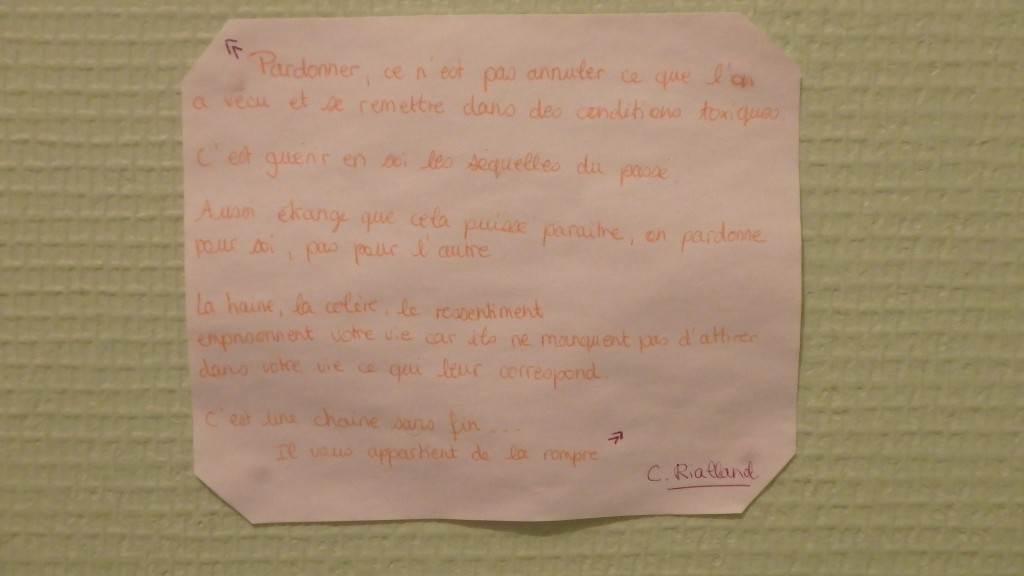 « Pardonner, ce n'est pas annuler ce que l'on
a vécu et se remettre dans des conditions toxiques
C'est guérir en soi les séquelles du passé.
Aussi étrange que cela puisse paraître, on pardonne
pour soi, pas pour l'autre
La haine, la colère, le ressentiment
emprisonnent votre vie car ils ne manquent pas d'attirer
dans votre vie ce qui leur correspond.
C'est une chaîne sans fin...
Il vous appartient de la rompre »
C. Rialland